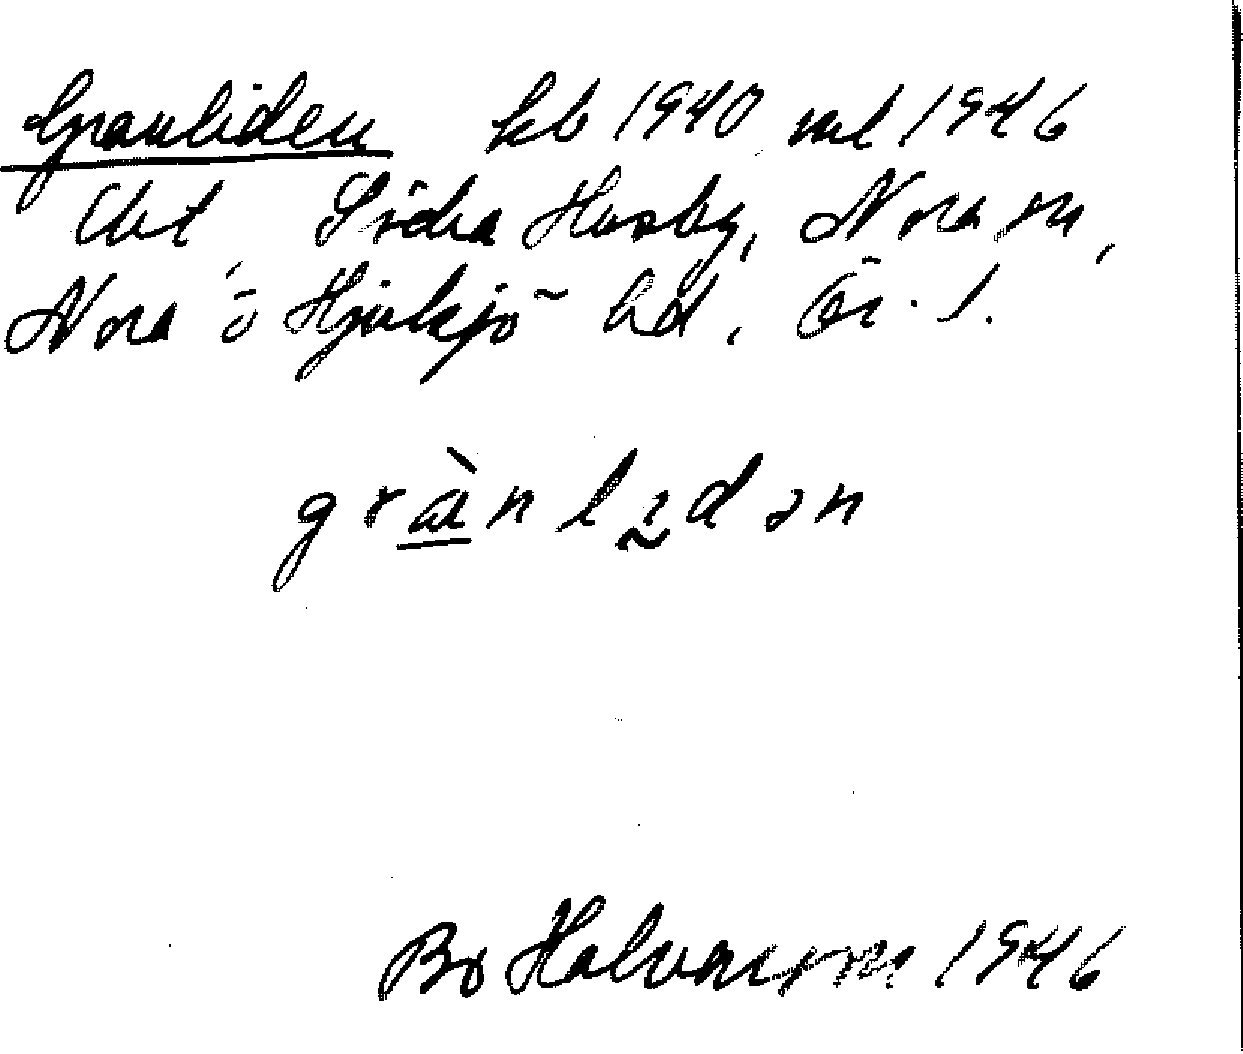 Granliden kb 1940 ml 1946
Södra Husby, Nora sn,
Nora o Hjulsjö hd, Ör. l.
grànlidən
Bo 1946